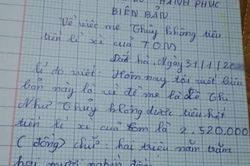 HẠNH PHÚC
BIÊN BẢN
Về việc mẹ Thủy không tiêu
tiền lì xì của TOM
Ngày 31/1/20
lí do viết: Hôm nay tôi viết biên
bản này là vì để mẹ là Lê Thị
Như Thủy không được tiêu hết
tiền lì xì của tôm là 2.520.000
(đồng) chữ: hai triệu năm trăm
hai mươi nghìn đồng